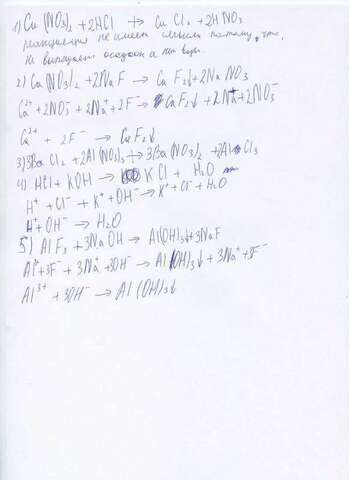 1) Cu(NO3)2 + 2HCl → CuCl2 + 2HNO3
реакция не имеет смысла потому, что
не выпадает осадок а нет
2) Ca(NO3)2 + 2NaF → CaF2↓ + 2NaNO3
Ca²⁺ + 2NO3⁻ + 2Na⁺ + 2F⁻ → CaF2↓ + 2Na⁺ + 2NO3⁻
Ca²⁺ + 2F⁻ → CaF2↓
3) 3BaCl2 + 2Al(NO3)3 → 3Ba(NO3)2 + 2AlCl3
4) HCl + KOH → KCl + H2O
H⁺ + Cl⁻ + K⁺ + OH⁻ → K⁺ + Cl⁻ + H2O
H⁺ + OH⁻ → H2O
5) AlF3 + 3NaOH → Al(OH)3↓ + 3NaF
Al³⁺ + 3F⁻ + 3Na⁺ + 3OH⁻ → Al(OH)3↓ + 3Na⁺ + 3F⁻
Al³⁺ + 3OH⁻ → Al(OH)3↓